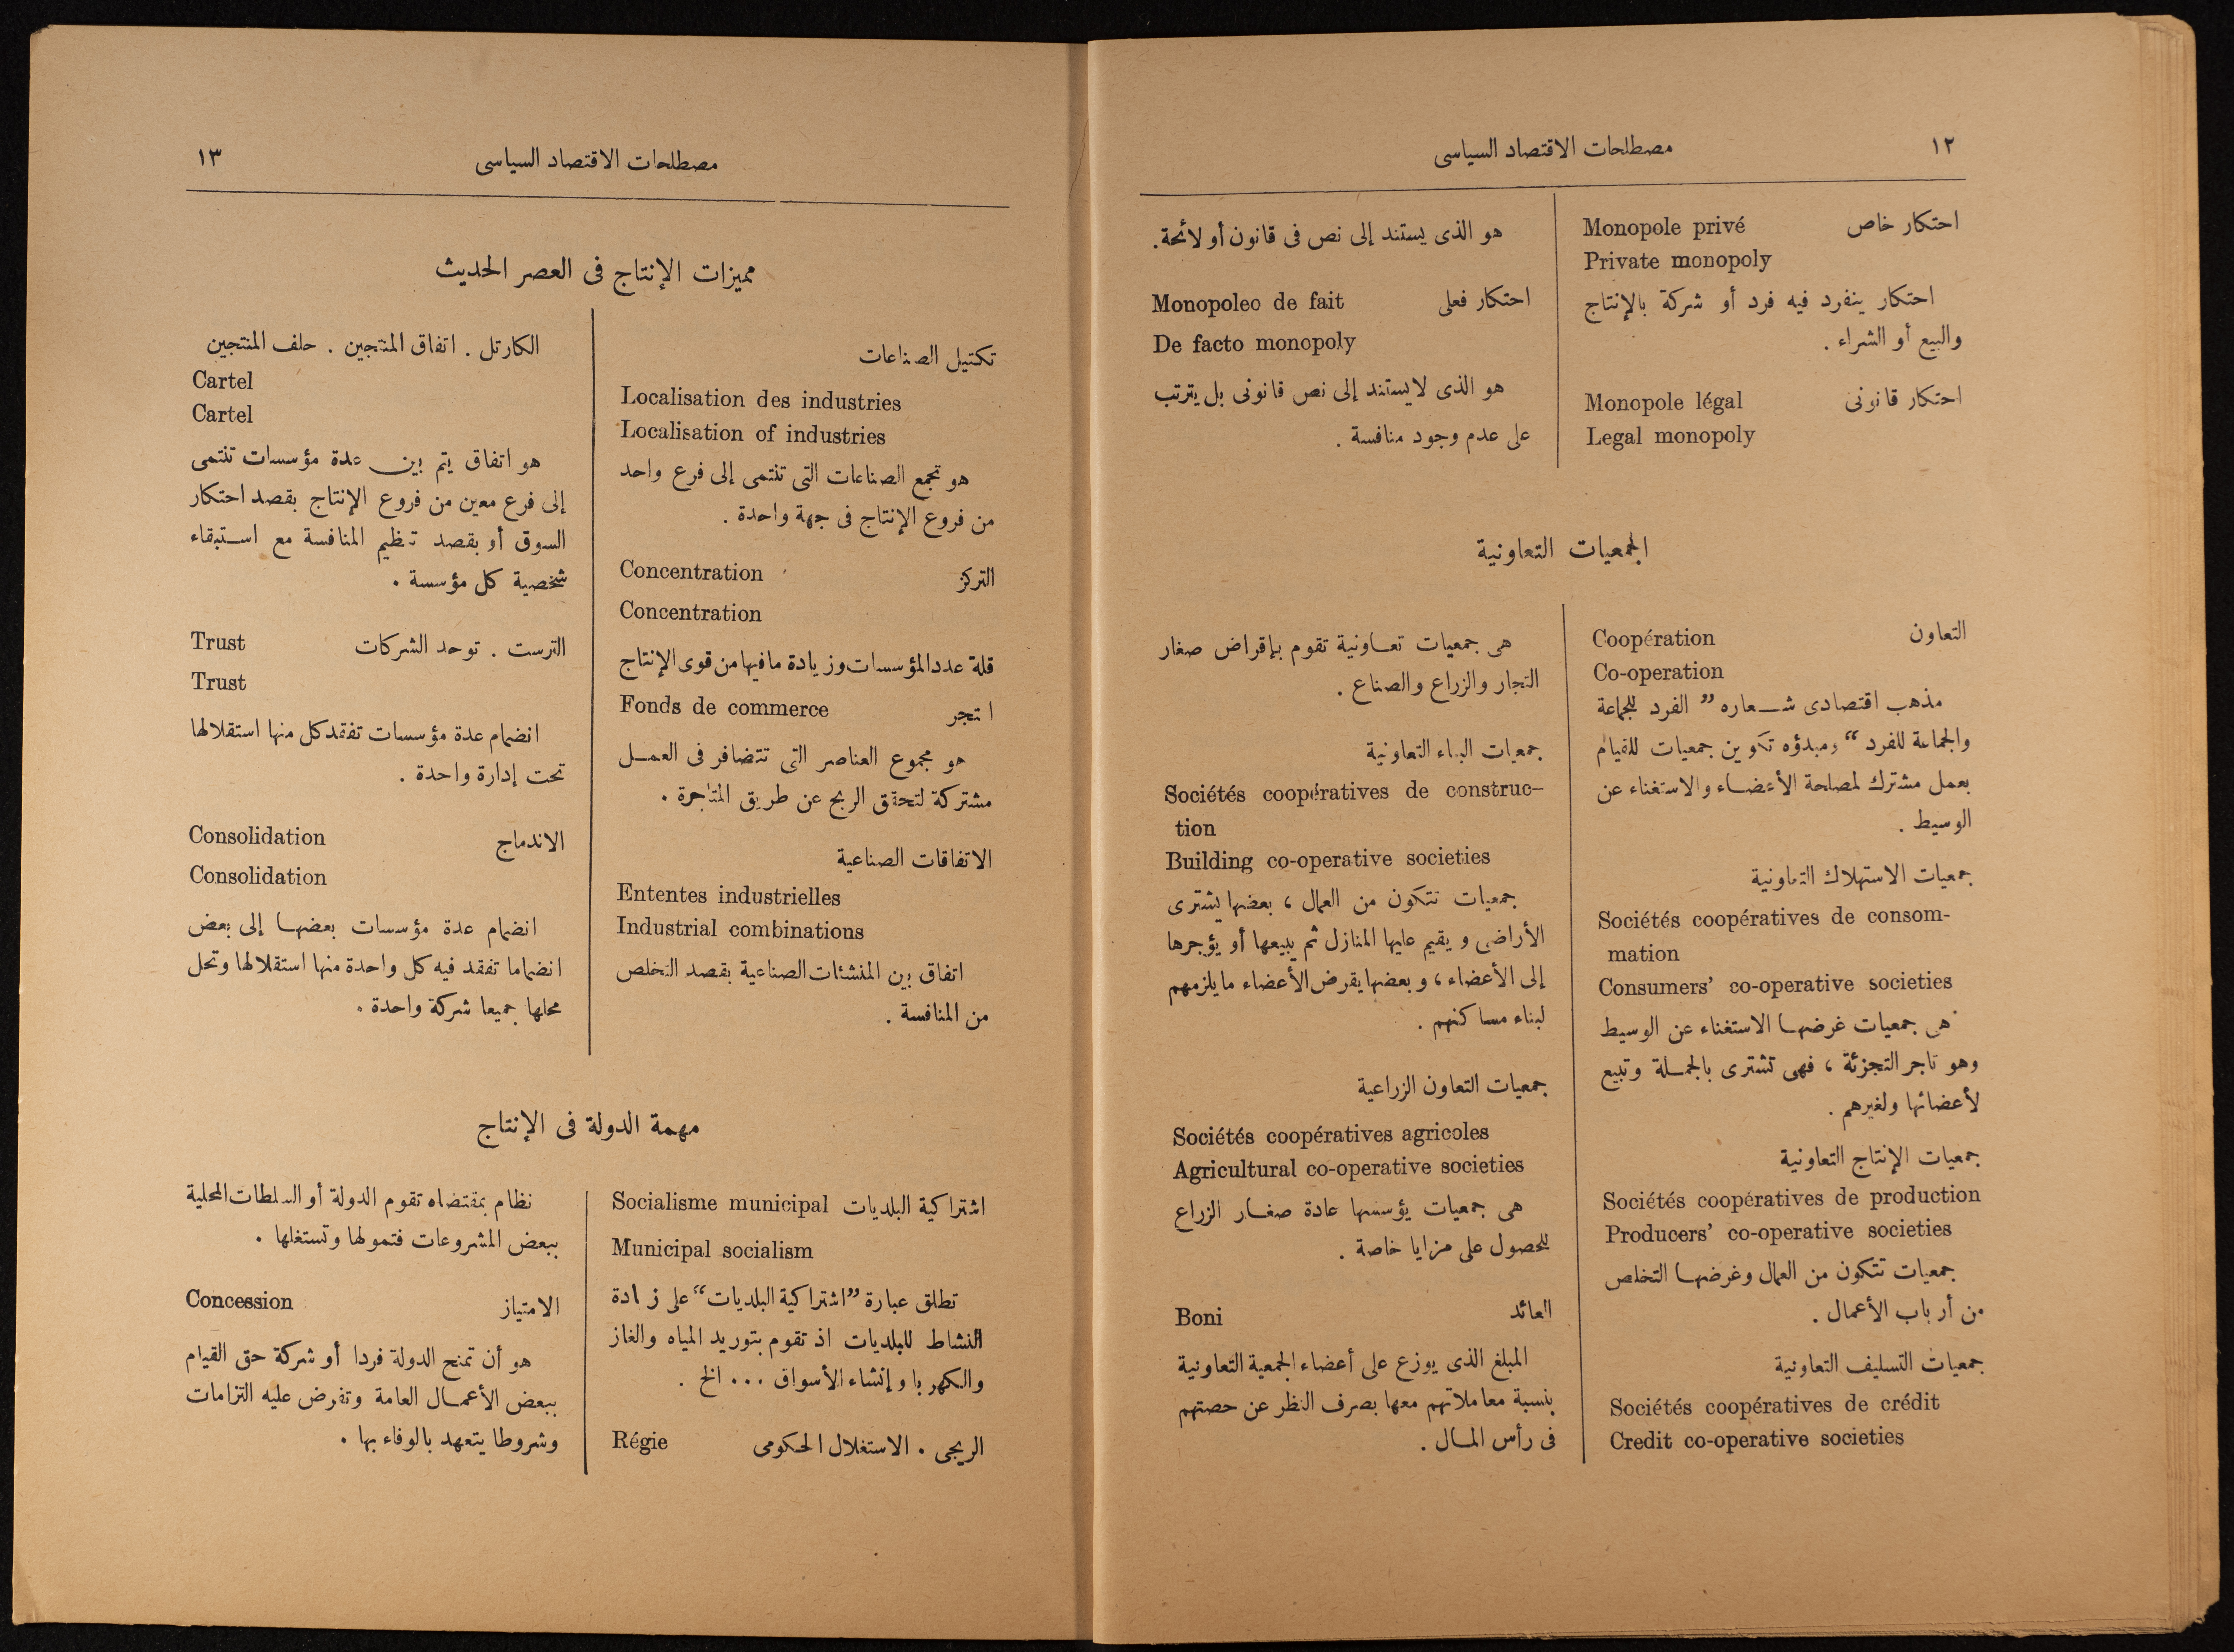 ١٢
مصطلحات الاقتصاد السياسى
احتكار خاص Monopole privé
Private monopoly
احتكار ينفرد فيه فرد أو شركة بالإنتاج
والبيع أو الشراء .
احتكار قانونى Monopole légal
Legal monopoly
هو الذى يستند إلى نص فى قانون أو لائحة .
احتكار فعلى Monopoleo de fait
De facto monopoly
هو الذى لا يستند إلى نص قانونى بل يترتب
على عدم وجود منافسة .
الجمعيات التعاونية
التعاون Coopération
Co-operation
مذهب اقتصادى شعاره ” الفرد للجماعة
والجماعة للفرد “ ومبدؤه تكوين جمعيات للقيام
بعمل مشترك لمصلحة الأعضاء والاستغناء عن
الوسيط .
جمعيات الاستهلاك التعاونية
Sociétés coopératives de consom-
mation
Consumers’ co-operative societies
هى جمعيات غرضها الاستغناء عن الوسيط
وهو تاجر التجزئة ، فهى تشترى بالجملة وتبيع
لأعضائها ولغيرهم .
جمعيات الإنتاج التعاونية
Sociétés coopératives de production
Producers’ co-operative societies
جمعيات تتكون من العمال وغرضها التخلص
من أرباب الأعمال .
جمعيات التسليف التعاونية
Sociétés coopératives de crédit
Credit co-operative societies
هى جمعيات تعاونية تقوم بإقراض صغار
التجار والزراع والصناع .
جمعيات البناء التعاونية
Sociétés coopératives de construc-
tion
Building co-operative societies
جمعيات تتكون من العمال ، بعضها يشترى
الأراضى ويقيم عليها المنازل ثم يبيعها أو يؤجرها
إلى الأعضاء ، وبعضها يقرض الأعضاء ما يلزمهم
لبناء مساكنهم .
جمعيات التعاون الزراعية
Sociétés coopératives agricoles
Agricultural co-operative societies
هى جمعيات يؤسسها عادة صغار الزراع
للحصول على مزايا خاصة .
العائد Boni
المبلغ الذى يوزع على أعضاء الجمعية التعاونية
بنسبة معاملاتهم معها بصرف النظر عن حصتهم
فى رأس المال .
مصطلحات الاقتصاد السياسى
١٣
مميزات الإنتاج فى العصر الحديث
تكتيل الصناعات
Localisation des industries
Localisation of industries
هو تجمع الصناعات التى تنتمى إلى فرع واحد
من فروع الإنتاج فى جهة واحدة .
التركز Concentration
Concentration
قلة عدد المؤسسات وزيادة ما فيها من قوى الإنتاج
ا تجر Fonds de commerce
هو مجموع العناصر التى تتضافر فى العمل
مشتركة لتحقق الربح عن طريق المتاجرة .
الاتفاقات الصناعية
Ententes industrielles
Industrial combinations
اتفاق بين المنشئات الصناعية بقصد التخلص
من المنافسة .
الكارتل . اتفاق المنتجين . حلف المنتجين
Cartel
Cartel
هو اتفاق يتم بين عدة مؤسسات تنتمى
إلى فرع معين من فروع الإنتاج بقصد احتكار
السوق أو بقصد تنظيم المنافسة مع استبقاء
شخصية كل مؤسسة .
الترست . توحد الشركات Trust
Trust
انضمام عدة مؤسسات تفقد كل منها استقلالها
تحت إدارة واحدة .
الاندماج Consolidation
Consolidation
انضمام عدة مؤسسات بعضها إلى بعض
انضماما تفقد فيه كل واحدة منها استقلالها وتحل
محلها جميعا شركة واحدة .
مهمة الدولة فى الإنتاج
اشتراكية البلديات Socialisme municipal
Municipal socialism
تطلق عبارة ” اشتراكية البلديات “ على زيادة
النشاط للبلديات اذ تقوم بتوريد المياه والغاز
والكهربا وإنشاء الأسواق ... الخ .
الريجى . الاستغلال الحكومى Régie
نظام بمقتضاه تقوم الدولة أو السلطات المحلية
ببعض المشروعات فتمولها وتستغلها .
الامتياز Concession
هو أن تمنح الدولة فردا أو شركة حق القيام
ببعض الأعمال العامة وتفرض عليه التزامات
وشروطا يتعهد بالوفاء بها .